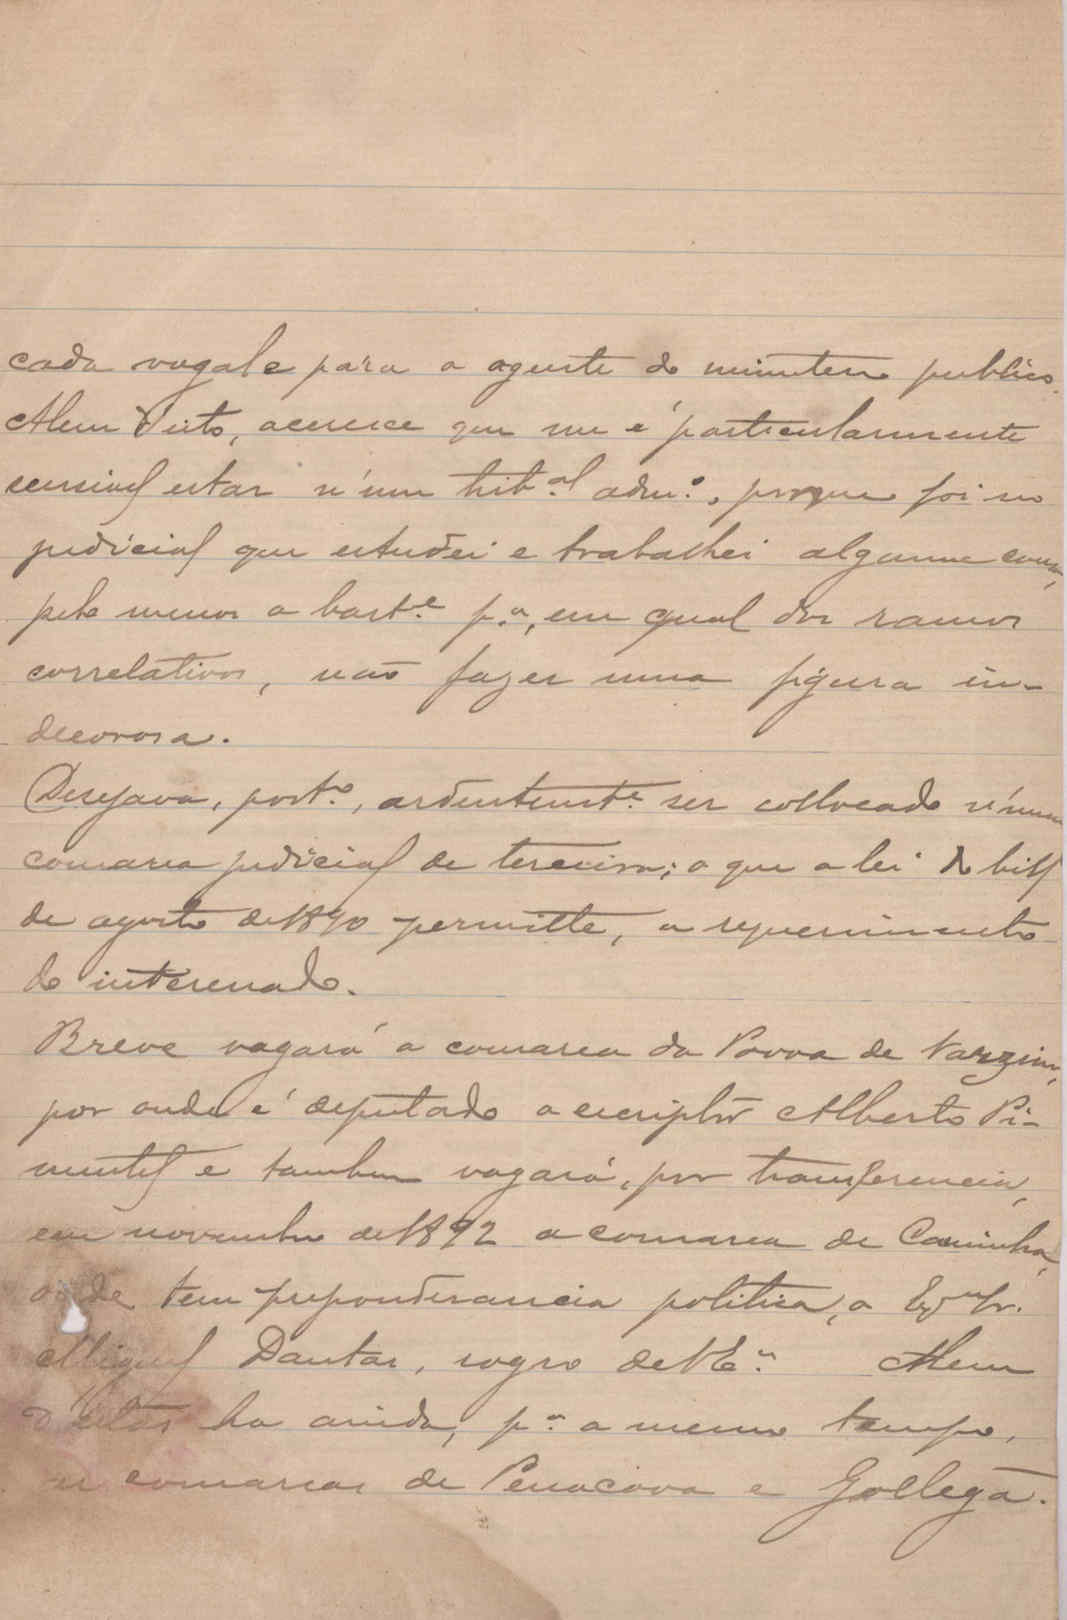 cada vogal e para o agente do ministerio publico.
Alem d'isto, accresce que me é particularmente
sensivel estar n'um trib.al adm.o, porque foi no
judicial que estudei e trabalhei alguma cousa,
pelo menos o bast.e p.a, em qual dos ramos
correlativos, não fazer uma figura in-
decorosa.
Desejava, port.o, ardentemt.e ser collocado n'uma
comarca judicial de terceira; o que a lei do bill
de agosto de 1890 permitte, a requerimento
do interessado.
Breve vagará a comarca da Povoa de Varzim,
por onde é deputado o escriptor Alberto Pi-
mentel e tambem vagará, por transferencia,
em novembro de 1892 a comarca de Caminha,
onde tem preponderancia politica, o Ex.mo Sr.
Miguel Dantas, sogro de V. Ex.a Alem
d'estas ha ainda, p.a o mesmo tempo,
as comarcas de Penacova e Gollegã.